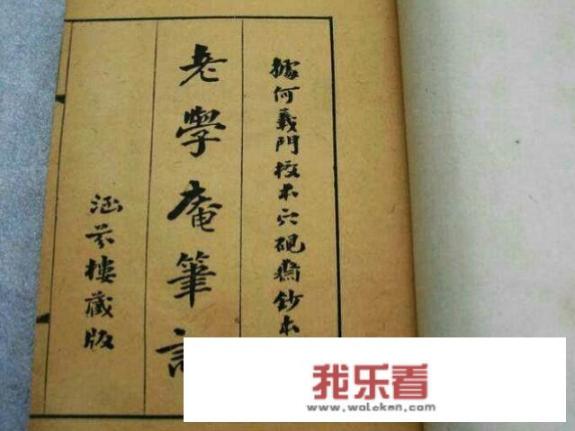 據何義門校本穴硯齋鈔本
老學庵筆記
涵芬樓藏版
我乐看
www.woleken.com